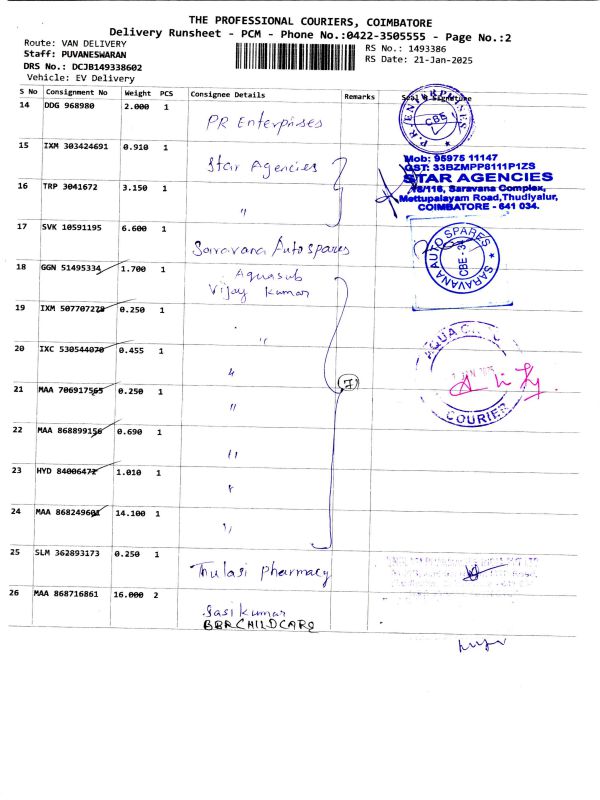 THE PROFESSIONAL COURIERS, COIMBATORE
Delivery Runsheet - PCM - Phone No.:0422-3505555 - Page No.:2
Route: VAN DELIVERY
RS No.: 1493386
Staff: PUVANESWARAN
RS Date: 21-Jan-2025
DRS No.: DCJB149338602
Vehicle: EV Delivery
S No Consignment No Weight PCS Consignee Details Remarks Seal & Signature
14 DDG 968980 2.000 1 PR Enterprises
P.R. ENTERPRISES CBE
15 IXM 303424691 0.910 1 Star Agencies
Mob: 95975 11147
GST: 33BZMPP8111P1ZS
STAR AGENCIES
16 TRP 3041672 3.150 1 "
15/116, Saravana Complex,
Mettupalayam Road,Thudiyalur,
COIMBATORE - 641 034.
17 SVK 10591195 6.600 1 Saravana Auto spares
SARAVANA AUTO SPARES CBE - 34
18 GGN 51495334 1.700 1 Aquasub
Vijay Kumar
19 IXM 507707278 0.250 1 "
20 IXC 530544070 0.455 1 "
21 MAA 706917565 0.250 1 "
7
COURIER
22 MAA 868899156 0.690 1 "
23 HYD 84006472 1.010 1 "
24 MAA 868249601 14.100 1 "
25 SLM 362893173 0.250 1 Thulasi pharmacy
26 MAA 868716861 16.000 2 Sasikumar
BBR CHILD CARE